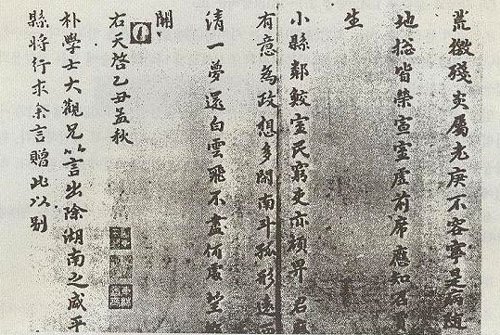 荒殘炎屬不容寧是病
地皆榮宣室虛前席應知君
生
小縣鄰鮫室民窮吏亦頑君
有意為政想多閒南斗孤形遠
清一夢還白雲飛不盡何處望
右天啓乙丑孟秋
朴學士大觀兄以言出除湖南之咸平
縣將行求余言贈此以別